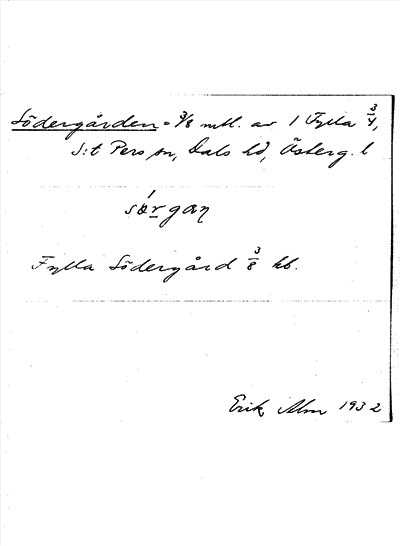 Södergården = 3/8 mtl. av 1 Fylla 3/4,
S:t Pers sn, Dals hd, Österg. l
sǿrgaŋ
Fylla Södergård 3/8 hb.
Erik Alm 1932